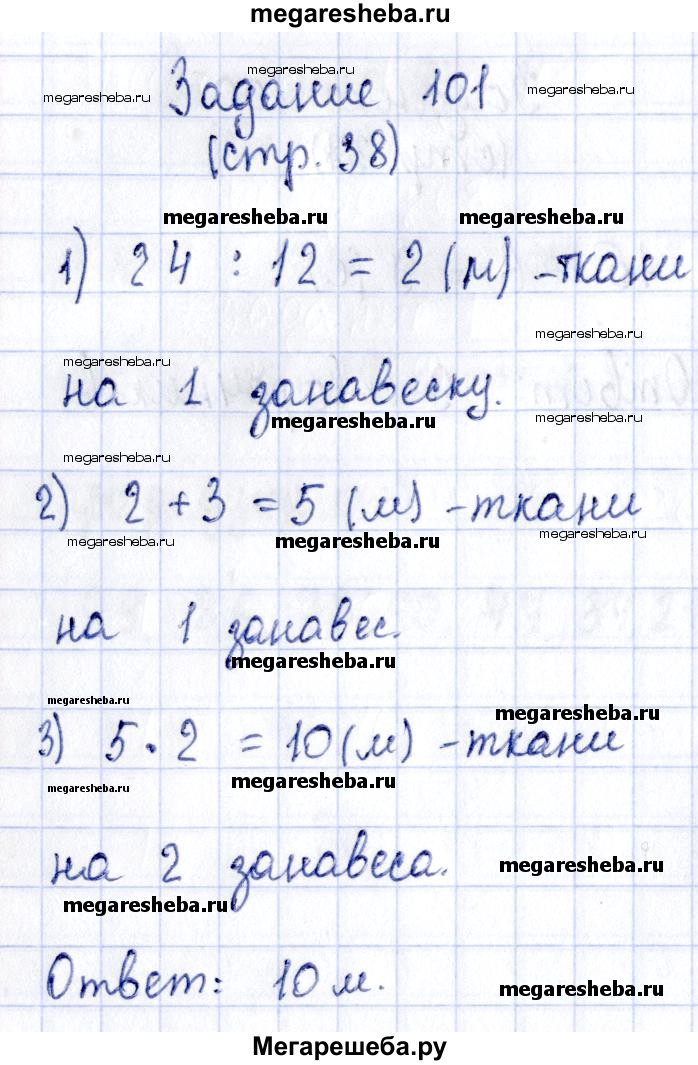 megaresheba.ru
megaresheba.ru
Задание 101
megaresheba.ru
megaresheba.ru
(стр. 38)
megaresheba.ru megaresheba.ru
1) 24 : 12 = 2 (м) - ткани
megaresheba.ru
megaresheba.ru
на 1 занавеску.
megaresheba.ru
megaresheba.ru
megaresheba.ru
2) 2 + 3 = 5 (м) - ткани
megaresheba.ru megaresheba.ru megaresheba.ru
на 1 занавес.
megaresheba.ru
megaresheba.ru
megaresheba.ru
3) 5 · 2 = 10 (м) - ткани
megaresheba.ru megaresheba.ru
на 2 занавеса.
megaresheba.ru
megaresheba.ru
Ответ: 10 м.
megaresheba.ru
Мегарешеба.ру